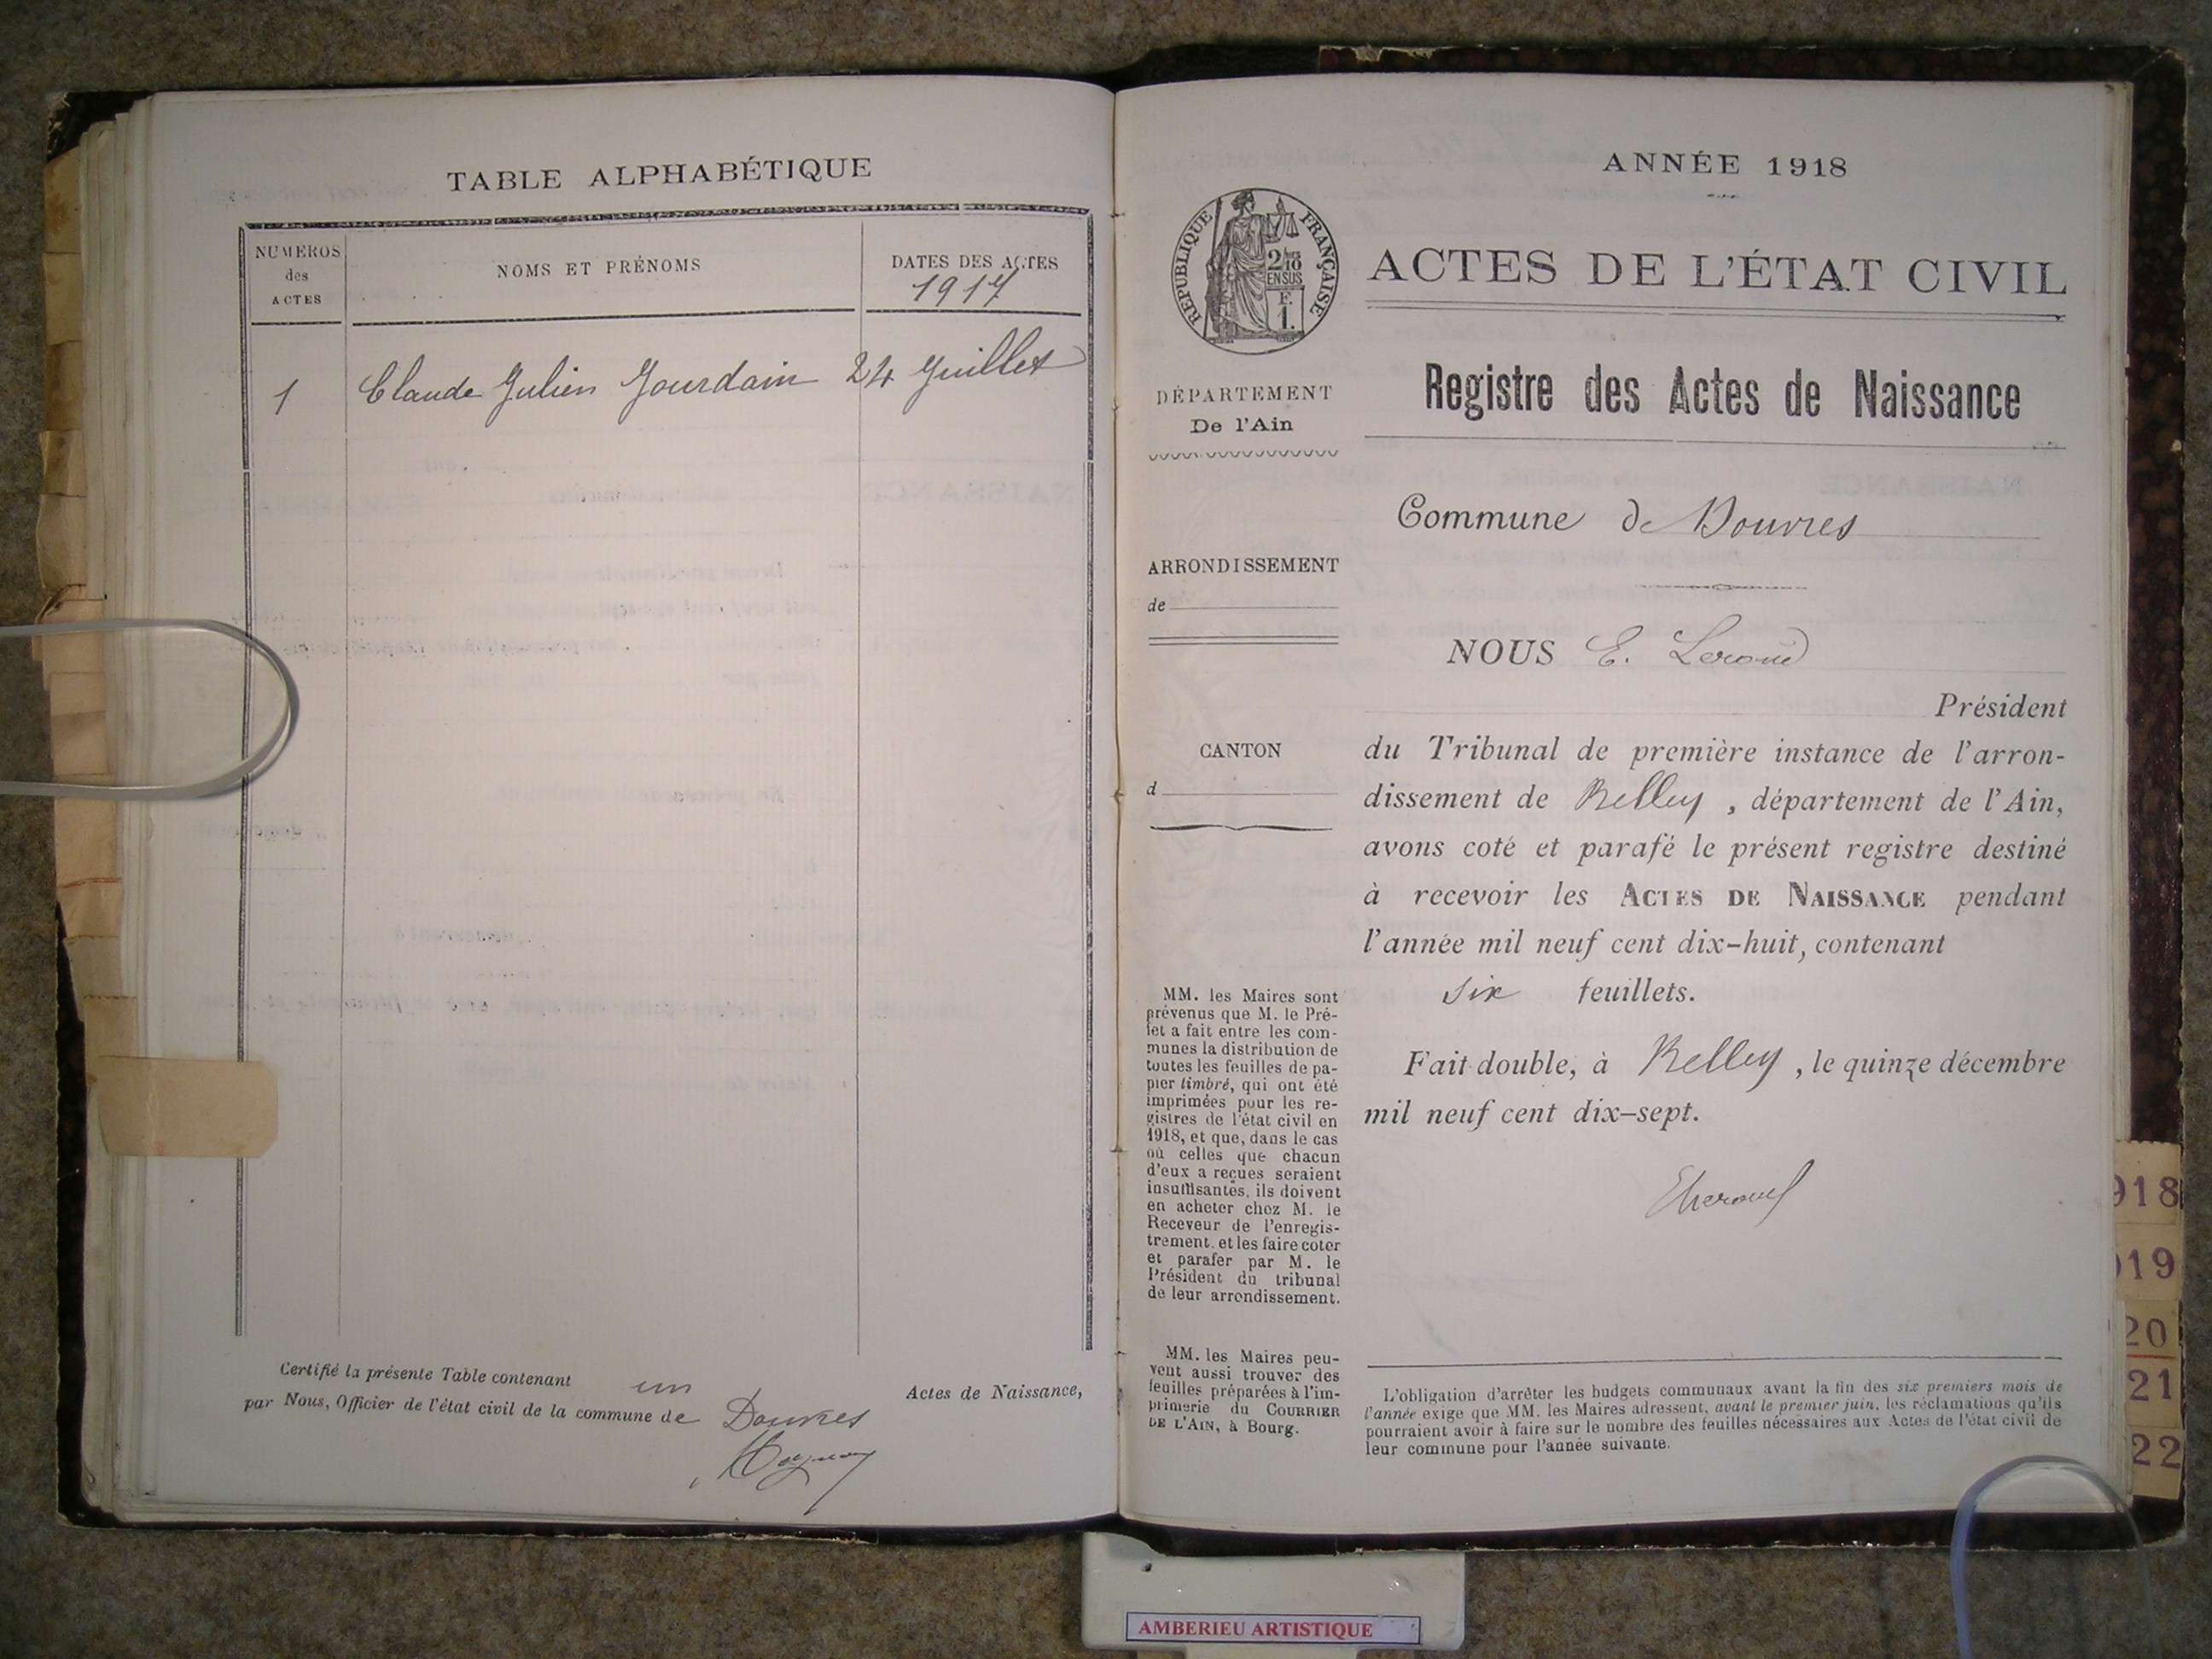 TABLE ALPHABÉTIQUE
NUMEROS
des
ACTES
NOMS ET PRÉNOMS
DATES DES ACTES
1917
1 Claude Julien Jourdain 24 Juillet
Certifié la présente Table contenant un Actes de Naissance,
par Nous, Officier de l'état civil de la commune de Douvres
ANNÉE 1918
RÉPUBLIQUE FRANÇAISE
2/10
EN SUS
F.
1.
ACTES DE L'ÉTAT CIVIL
Registre des Actes de Naissance
DÉPARTEMENT
De l'Ain
ARRONDISSEMENT
de
CANTON
d
MM. les Maires sont
prévenus que M. le Pré-
fet a fait entre les com-
munes la distribution de
toutes les feuilles de pa-
pier timbré, qui ont été
imprimées pour les re-
gistres de l'état civil en
1918, et que, dans le cas
où celles que chacun
d'eux a reçues seraient
insuffisantes, ils doivent
en acheter chez M. le
Receveur de l'enregis-
trement, et les faire coter
et parafer par M. le
Président du tribunal
de leur arrondissement.
MM. les Maires peu-
vent aussi trouver des
feuilles préparées à l'im-
primerie du COURRIER
DE L'AIN, à Bourg.
Commune de Douvres
NOUS E.
Président
du Tribunal de première instance de l'arron-
dissement de Belley, département de l'Ain,
avons coté et parafé le présent registre destiné
à recevoir les ACTES DE NAISSANCE pendant
l'année mil neuf cent dix-huit, contenant
six feuillets.
Fait double, à Belley, le quinze décembre
mil neuf cent dix-sept.
L'obligation d'arrêter les budgets communaux avant la fin des six premiers mois de
l'année exige que MM. les Maires adressent, avant le premier juin, les réclamations qu'ils
pourraient avoir à faire sur le nombre des feuilles nécessaires aux Actes de l'état civil de
leur commune pour l'année suivante.
918
19
20
21
22
AMBERIEU ARTISTIQUE